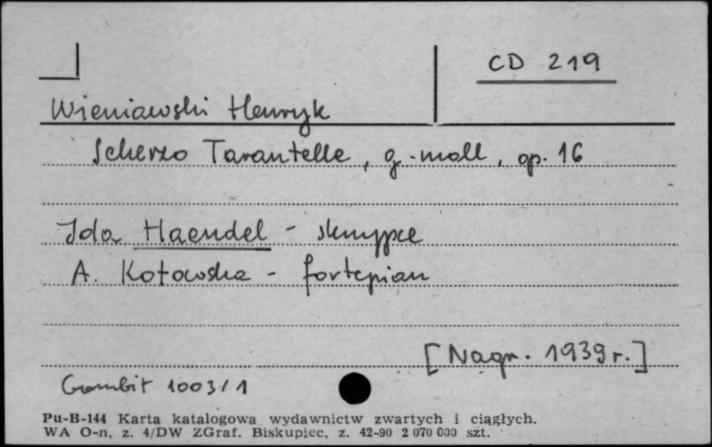 CD 219
Wieniawski Henryk
Scherzo Tarantelle, g-moll, op. 16
Ida Haendel - skrzypce
A. Kotowska - fortepian
[Nagr. 1939 r.]
Gambit 1003/1
Pu-B-144 Karta katalogowa wydawnictw zwartych i ciągłych.
WA O-n, z. 4/DW ZGraf. Biskupiec, z. 42-90 2 070 000 szt.